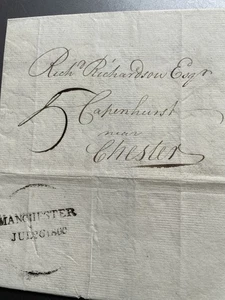 Richd Richardson Esqr
5
Capenhurst
near
Chester
MANCHESTER